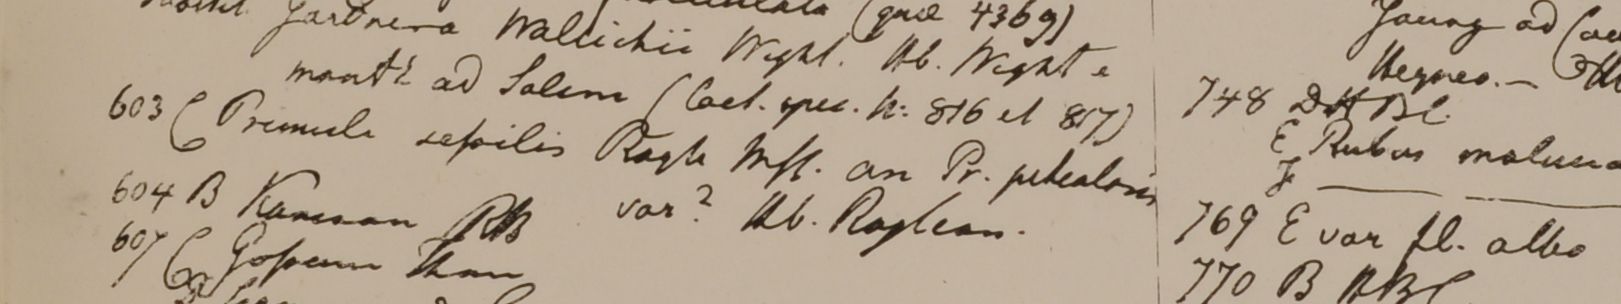 (quæ 4369)
Wallichii Wight. Hb. Wight e
mont: ad Salem (Cat. spec. n: 816 et 817)
603 C Primula sessilis Royle Mss. an Pr. petiolaris
var? Hb. Roylean.
604 B Kamaon RB
607 C Gossain Than
Young ad
748
E Rubus
F
769 E var fl. albo
770 B HBC